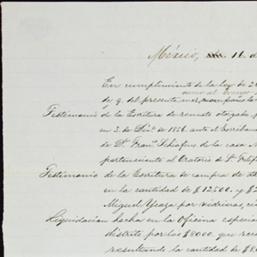 México, 16 d
En cumplimiento de la ley de 2
de 9. del presente
Testimonio de la Escritura de remate otorgada
en 2. de Dic.e de 1856 ante el Escribano
de D.n Fran.co de la casa N
perteneciente al Oratorio de S. Felip
Testimonio de la Escritura de compra de
en la cantidad de $12500. y $2
Miguel Ycaza por
Liquidacion hecha en la Oficina especia
distrito por los $8000 que
resultando la cantidad de $8